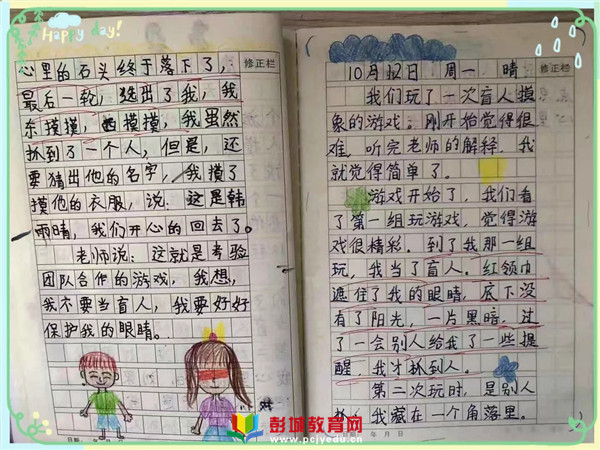 Happy day!
10月12日 周一 晴
修正栏
我们玩了一次盲人摸
象的游戏。刚开始觉得很
难，听完老师的解释，我
就觉得简单了。
游戏开始了，我们看
了第一组玩游戏，觉得游
戏很精彩。到了我那一组
玩，我当了盲人。红领巾
遮住了我的眼睛，底下没
有了阳光，一片黑暗，过
了一会别人给我了一些提
醒，我才抓到人。
第二次玩时，是别人
我藏在一个角落里。
年 月 日
心里的石头终于落下了，
修正栏
最后一轮，选出了我，我
东摸摸，西摸摸，我虽然
抓到了一个人，但是，还
要猜出他的名字，我摸了
摸他的衣服，说，这是韩
雨晴，我们开心的回去了。
老师说：这就是考验
团队合作的游戏，我想，
我不要当盲人，我要好好
保护我的眼睛。
日期：
彭城教育网
www.pcjyedu.cn